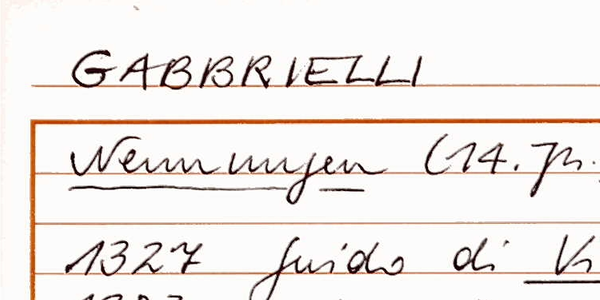 GABBRIELLI
Nennungen (14. Jh.
1327 Guido di